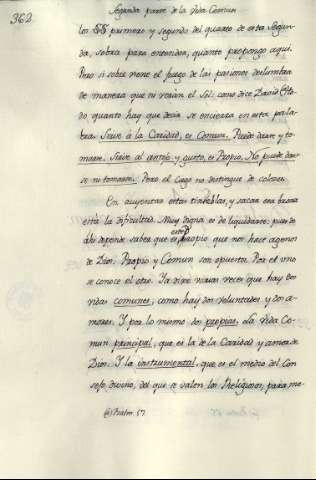 362
Segunda parte de la Vida Comun
los §§ primero y segundo del quarto de esta Segun-
da, sobra para entender, quanto propongo aqui.
Pero si sobre viene el fuego de las pasiones deslumbra
de manera que ni verán el Sol: como dice David @ To-
do quanto hay que decir se encierra en estas pala-
bras. Sirve à la Caridad, es Comun. Puede darse y to-
marse. Sirve al antojo y gusto, es Propio. No puede dar-
se ni tomarse. Pero el Ciego no distingue de colores.
En auyentar estas tinieblas, y sacar esa
está la dificultad. Muy digna es de liquidarse: pues de
ahi depende saber que es esto Propio que nos hace agenos
de Dios. Propio y Comun son opuestos. Por el uno
se conoce el otro. Ya dixe varias veces que hay dos
vidas comunes, como hay dos voluntades y dos a-
mores. Y por lo mismo dos propias. La Vida Co-
mun principal, que es la de la Caridad y amor de
Dios. Y la instrumental, que es el medio del Con-
sejo divino, del que se valen los Religiosos, para me-
@ Psalm. 57.